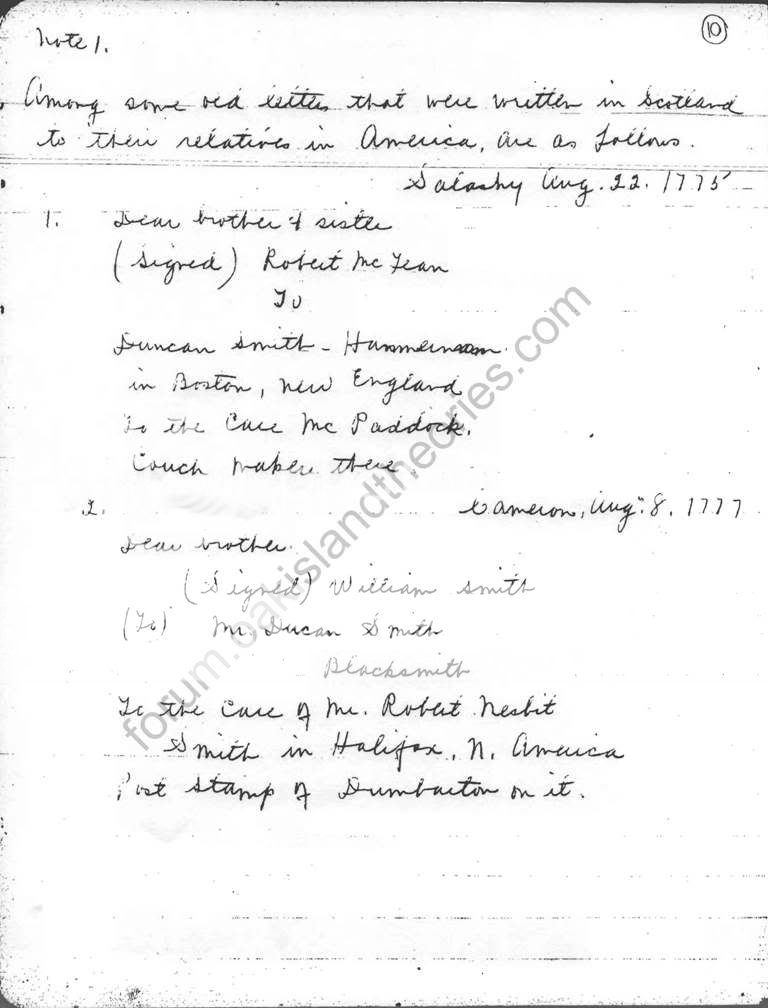 10
Note 1.
Among some old letters that were written in Scotland
to their relatives in America, are as follows.
Aug. 22. 1775
1. Dear brother & sister
(Signed) Robert Mc Fean
To
Duncan Smith -
in Boston, New England
To the Care Mc Paddock.
Couch maker there.
2. Cameron, Aug. 8. 1777
Dear brother.
(Signed) William Smith
(To) Mr. Ducan Smith
Blacksmith
To the Care of Mr. Robert Nesbit
Smith in Halifax, N. America
Post Stamp of Dumbarton on it.
forum.oakislandtheories.com